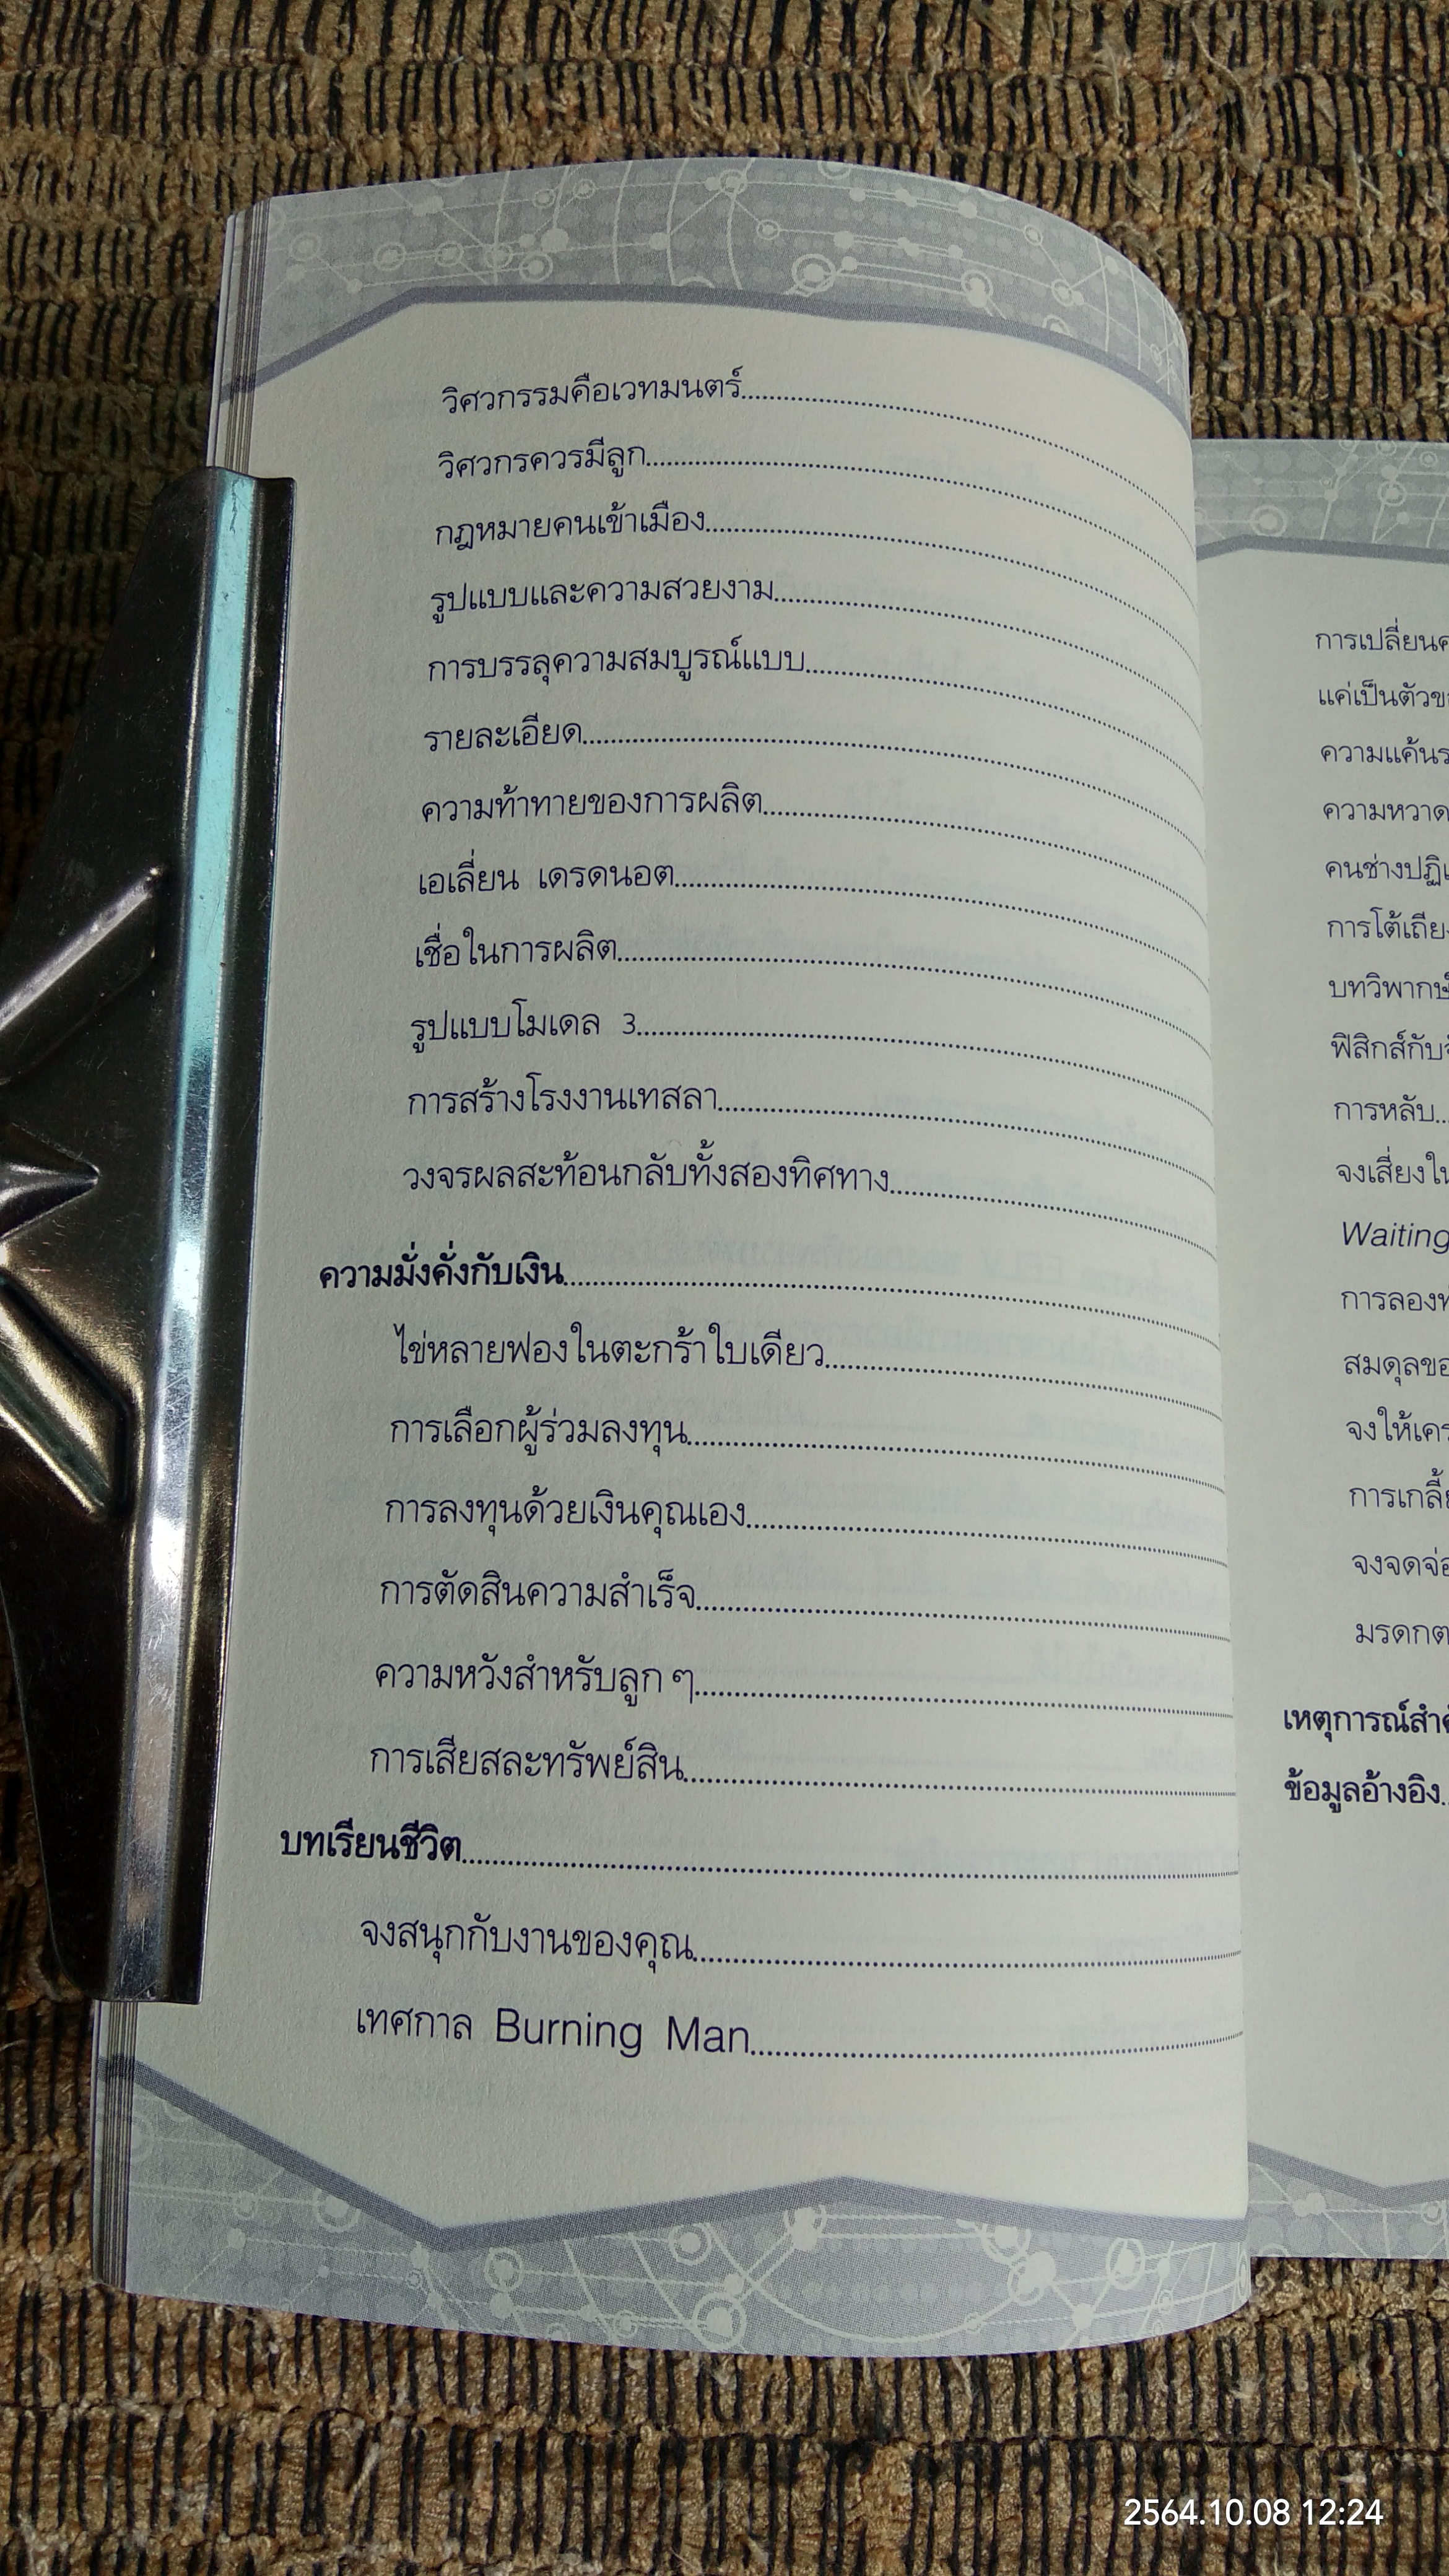 วิศวกรรมคือเวทมนตร์
วิศวกรควรมีลูก
กฎหมายคนเข้าเมือง
รูปแบบและความสวยงาม
การบรรลุความสมบูรณ์แบบ
รายละเอียด
ความท้าทายของการผลิต
เอเลี่ยน เดรดนอต
เชื่อในการผลิต
รูปแบบโมเดล 3
การสร้างโรงงานเทสลา
วงจรผลสะท้อนกลับทั้งสองทิศทาง
ความมั่งคั่งกับเงิน
ไข่หลายฟองในตะกร้าใบเดียว
การเลือกผู้ร่วมลงทุน
การลงทุนด้วยเงินคุณเอง
การตัดสินความสำเร็จ
ความหวังสำหรับลูก ๆ
การเสียสละทรัพย์สิน
บทเรียนชีวิต
จงสนุกกับงานของคุณ
เทศกาล Burning Man
การเปลี่ยน
แค่เป็นตัว
ความแค้น
ความหวาด
คนช่าง
การโต้เถียง
บทวิพากษ์
ฟิสิกส์กับ
การหลับ
จงเสี่ยงใน
Waiting
การลอง
สมดุล
จงให้
การ
จงจดจ่อ
มรดก
เหตุการณ์
ข้อมูลอ้างอิง
2564.10.08 12:24